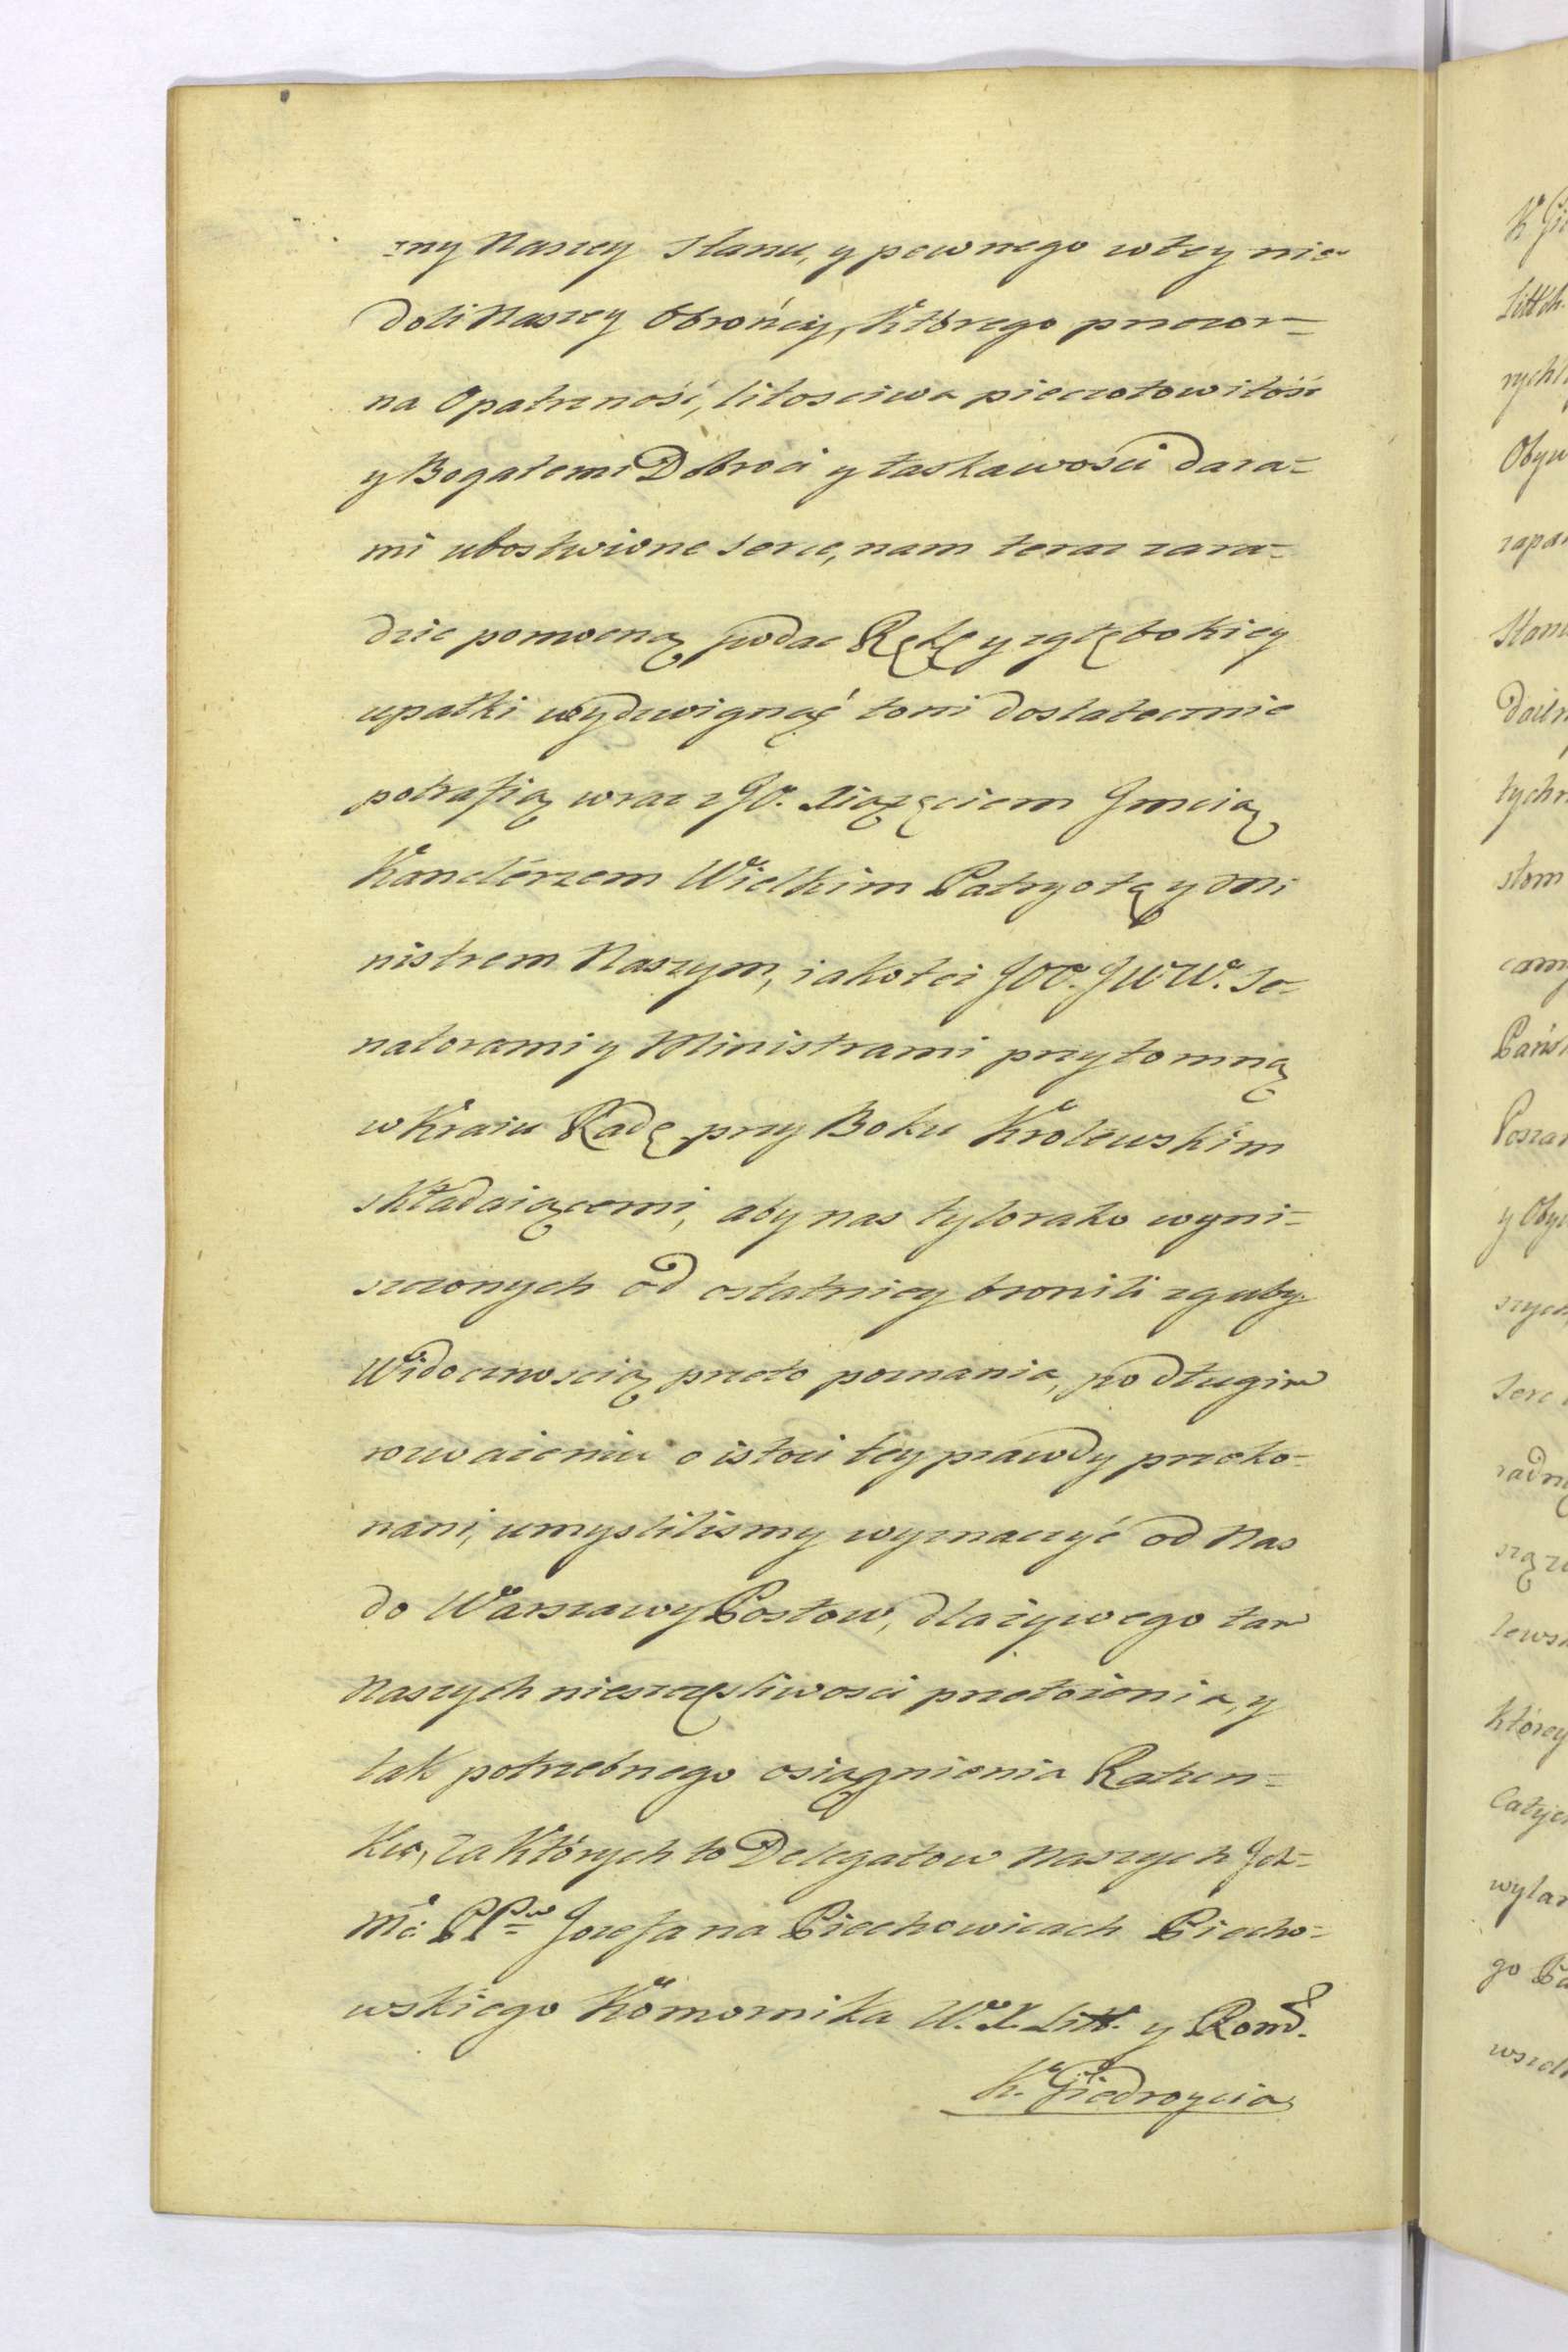 zny Naszey Stanu, y pewnego w tey nie=
doli Naszey Obrońcy, Którego przezor=
na Opatrzność, litosciwa pieczołowitość
y Bogatemi Dobroci y łaskawości Dara=
mi ubostwione serce, nam teraz zara=
dzić pomocną podać Rękę y z głębokiey
upałki wydzwignąć toni dostatecznie
potrafią, wraz z JO. Xiążęciem Jmcią
Kanclerzem Wielkim Patryotą y Mi
nistrem Naszym, iakoteż JOO. JWW. Se=
natorami y Ministrami przytomną
w Kraiu Radę przy Boku Krolewskim
składaiącemi, aby nas tylorako wyni=
szczonych od ostatniey bronili zguby.
Widocznoscią przeto poznania, po długim
rozważeniu o istoci tey prawdy przeko=
nani, umyslilismy wyznaczyć od Nas
do Warszawy Posłow, dla żywego tam
Naszych nieszczęsliwosci przełożenia, y
tak potrzebnego osiągnienia Ratun=
Ku, Za Których to Delegatow Naszych Ich=
Mć PPw Jozefa na Piechowicach Piecho=
wskiego Komornika W. X. Litt. y Romd.
K. Giedroycia
K Gie
Litt
rychl
Obyw
zapa
Stanu
tychr
słom
cam
Państ
Posza
y Oby
szych
Serc
radn
Którey
Całey
go